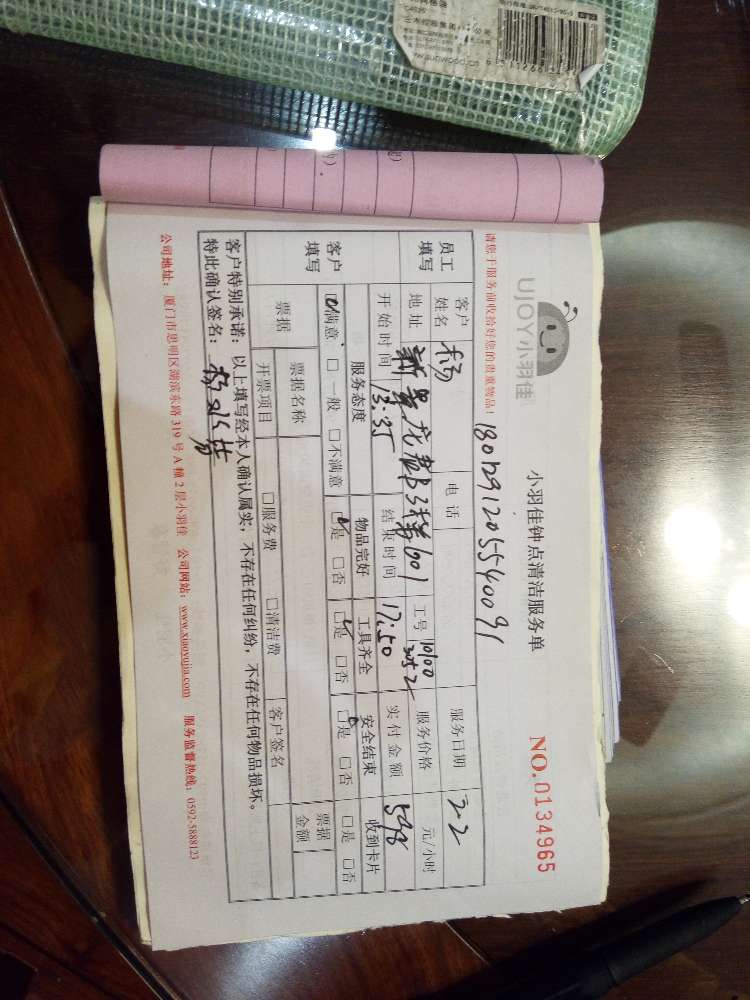 UJOY小羽佳
小羽佳钟点清洁服务单
NO.0134965
请您于服务前收拾好您的贵重物品！
180129120554009
员工填写
客户姓名 杨 电话 服务日期 22
地址 工号 服务价格 元/小时
开始时间 13:35 结束时间 17:50 实付金额
客户填写
服务态度 物品完好 工具齐全 安全结束 收到卡片
☑满意 □一般 □不满意 ☑是 □否 ☑是 □否 ☑是 □否 □是 □否
票据 票据名称 票据金额
开票项目 □服务费 □清洁费 客户签名
客户特别承诺：以上填写经本人确认属实，不存在任何纠纷，不存在任何物品损坏。
特此确认签名：
公司地址：厦门市思明区湖滨东路319号A幢2层小羽佳 公司网站：www.xiaoyujia.com 服务监督热线：0592-5888123